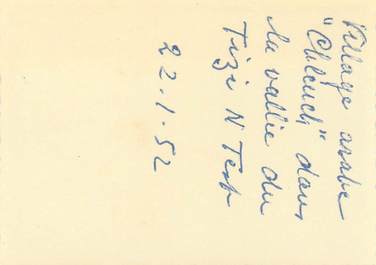 Village arabe
"Chleuch" dans
la vallée du
Tizi N Test
22.1.52